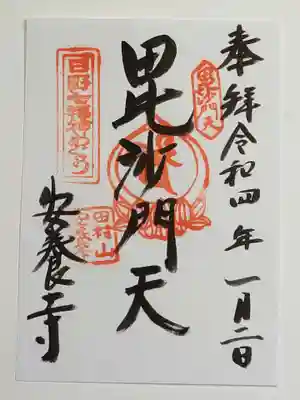 奉拝 令和四年 一月二日
毘沙門天
毘沙門天
日野七福神めぐり
田村山
安養寺